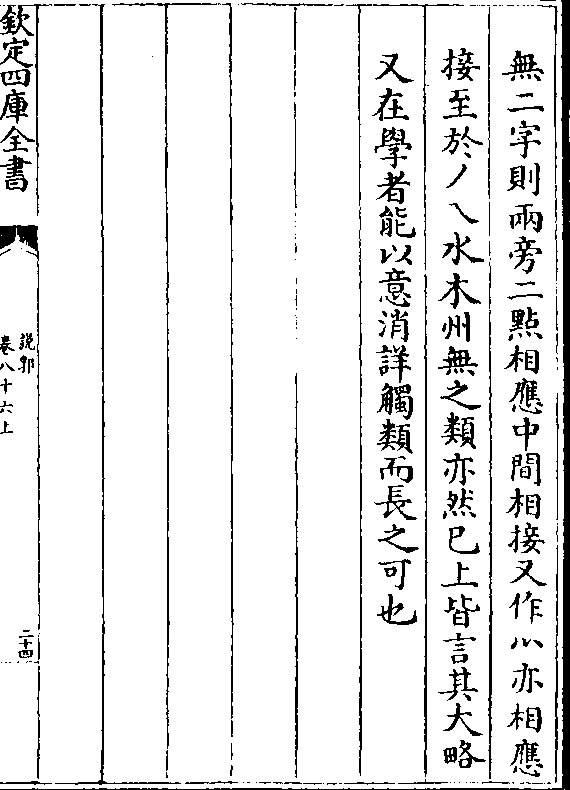 無二字則兩旁二點相應中間相接又作八亦相應
接至於丿乀水木州無之類亦然巳上皆言其大略
又在學者能以意消詳觸類而長之可也
欽定四庫全書
說郛
卷八十六上
二十四